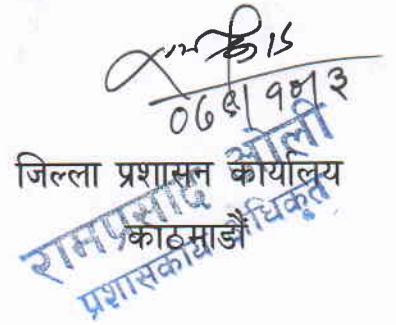 जिल्ला प्रशासन कार्यालय
काठमाडौं
रामप्रसाद ओली
प्रशासकीय अधिकृत